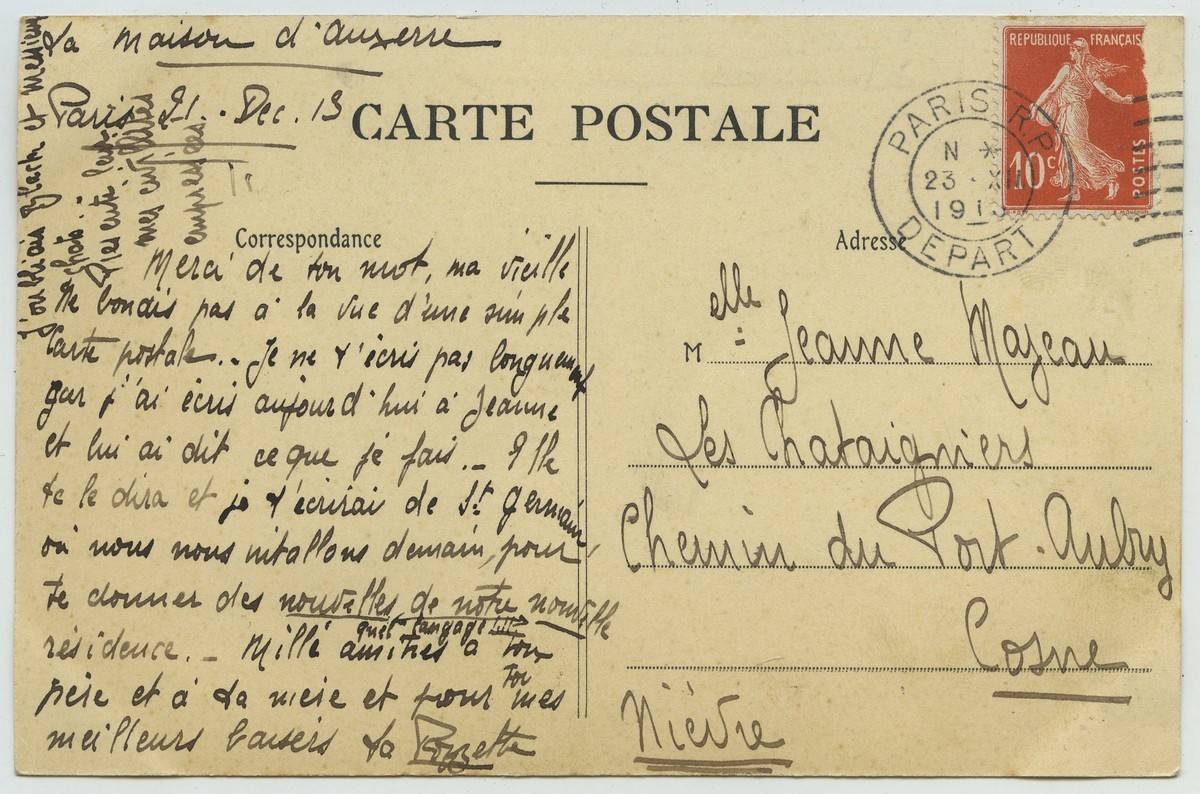 La maison d'Auxerre
Paris 21. Dec. 13
CARTE POSTALE
Correspondance
Merci de ton mot, ma vieille
Ne bondis pas à la vue d'une simple
Carte postale.. Je ne t'écris pas longuement
car j'ai écris aujourd'hui à Jeanne
et lui ai dit ce que je fais. _ Elle
te le dira et je t'écrirai de St Germain
où nous nous intallons demain, pour
te donner des nouvelles de notre nouvelle
quel langage !!!
résidence. _ Mille amitiés à ton
père et à ta mère et pour toi mes
meilleurs baisers ta Pozzette
J'oubliais Blach et Messieurs
chats:
Présente leur
mes civilités
empressées
REPUBLIQUE FRANÇAISE
10c
POSTES
PARIS R.P.
N *
23 - XII
1913
DEPART
Adresse
Melle Jeanne Mazeau
Les Chataigniers
Chemin du Port-Aubry
Cosne
Nièvre